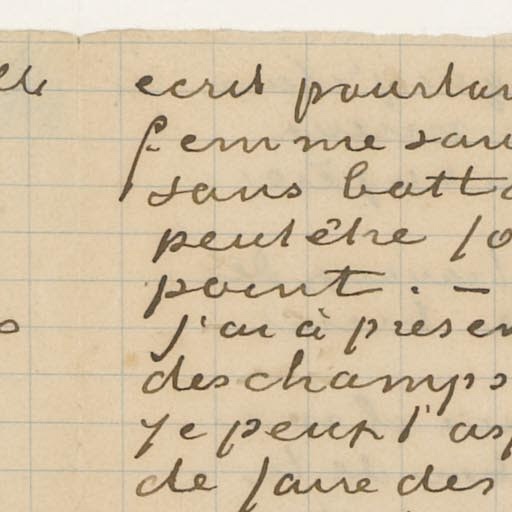 ecrit pourtan
femme san
sans batt
peut être fo
point. –
j'ai à presen
des champs
je peux l'as
de faire des